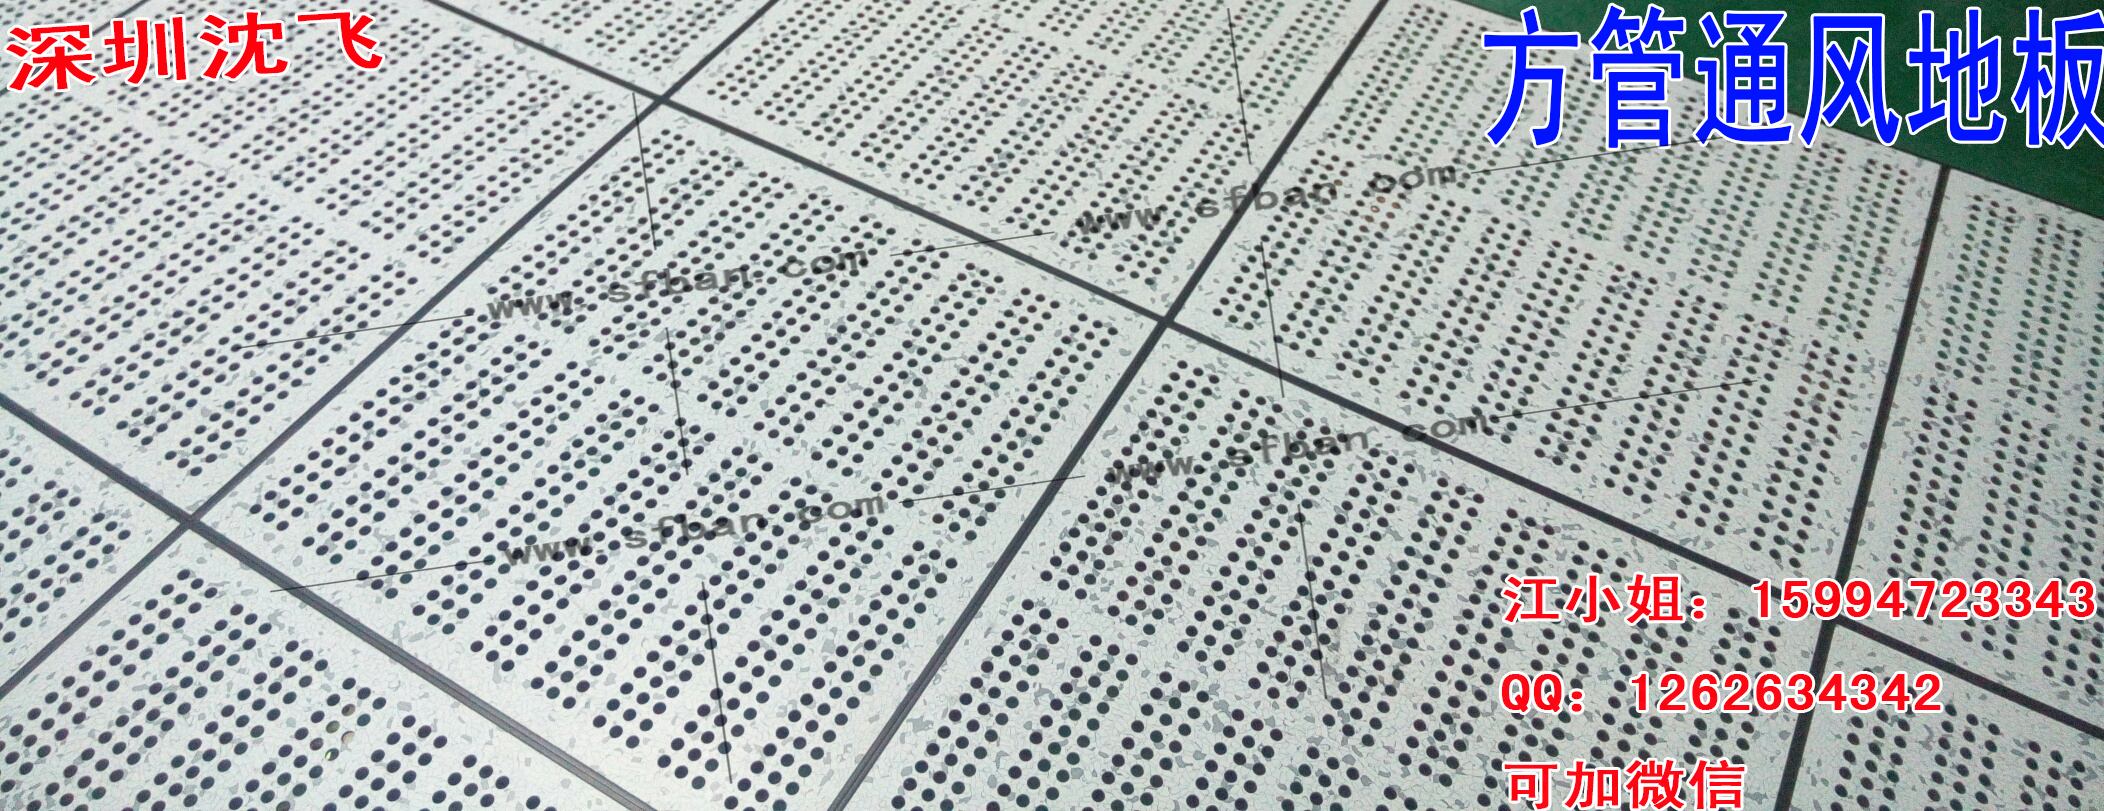 深圳沈飞
方管通风地板
www.sfban.com
www.sfban.com
www.sfban.com
www.sfban.com
江小姐：15994723343
QQ：1262634342
可加微信